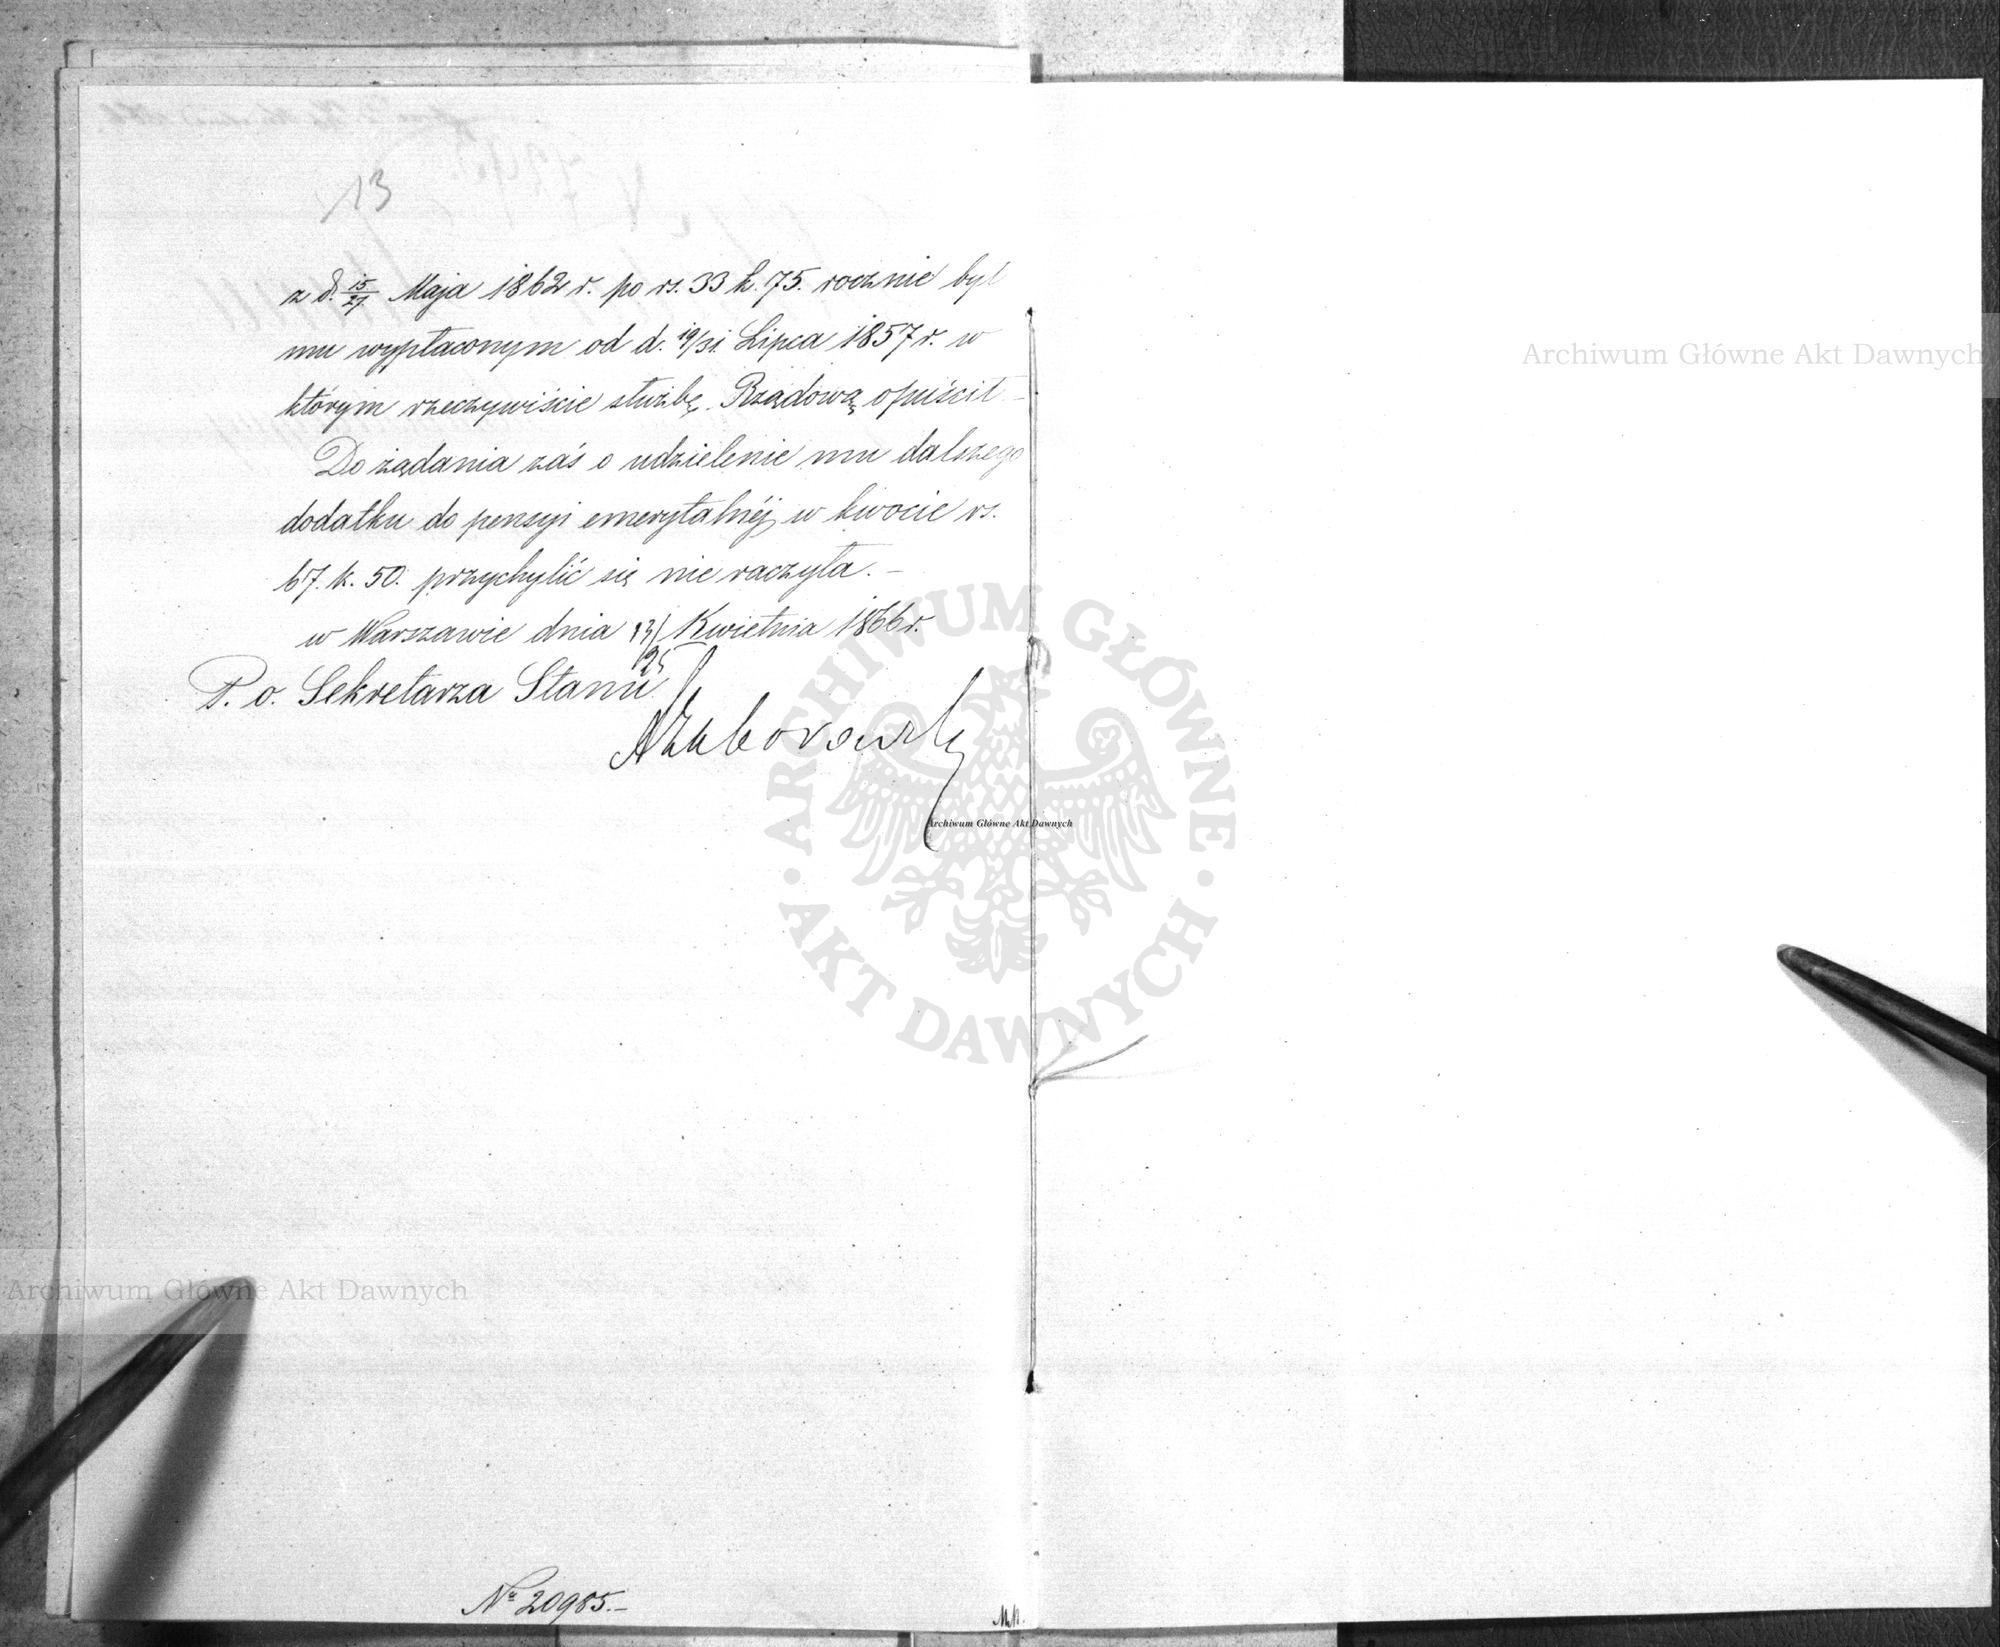 13
z d. 15/27 Maja 1862 r. po rs. 33 k. 75. rocznie był
mu wypłaconym od d. 19/31 Lipca 1857 r. w
którym rzeczywiście służbę Rządową opuścił –
Do żądania zaś o udzielenie mu dalszego
dodatku do pensyi emerytalnéj w kwocie rs.
67. k. 50. przychylić się nie raczyła. –
w Warszawie dnia 13/25 Kwietnia 1866 r.
P. o. Sekretarza Stanu
Zaborowski
№ 20985.–
Archiwum Główne Akt Dawnych
Archiwum Główne Akt Dawnych
Archiwum Główne Akt Dawnych
ARCHIWUM GŁÓWNE
AKT DAWNYCH